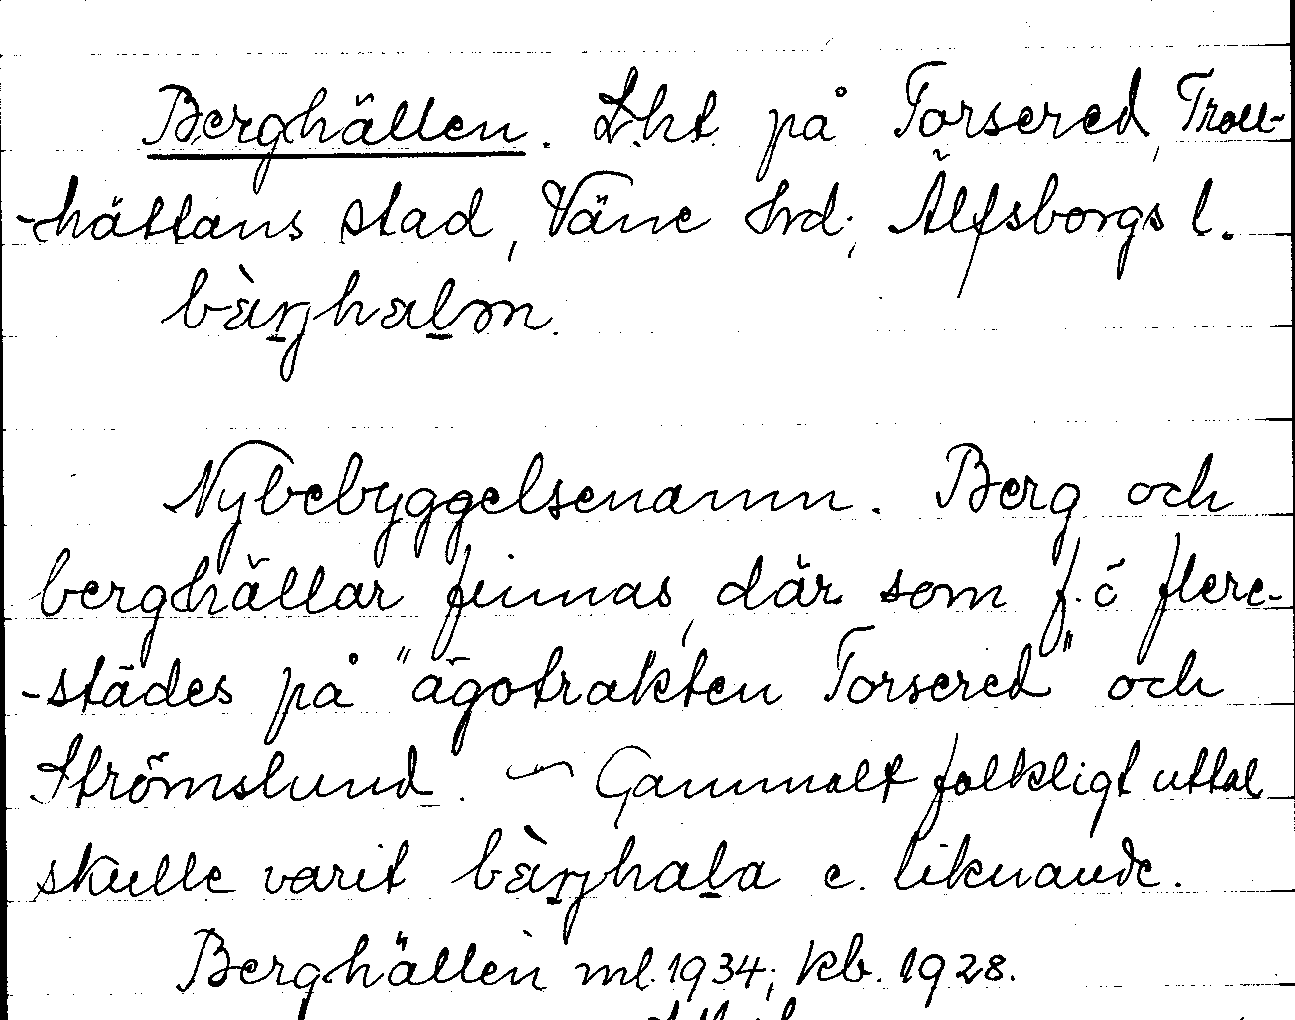 Berghällen. Lht på Torsered, Troll-
-hättans stad, Väne hrd; Älfsborgs l.
bàrjhaḻm.
Nybebyggelsenamn. Berg och
berghällar finnas, där som f.ö flere-
-städes på "ägotrakten Torsered" och
Strömslund. ~ Gammalt folkligt uttal
skulle varit bàrjhaḻa e. liknande.
Berghällen ml. 1934; kb. 1928.